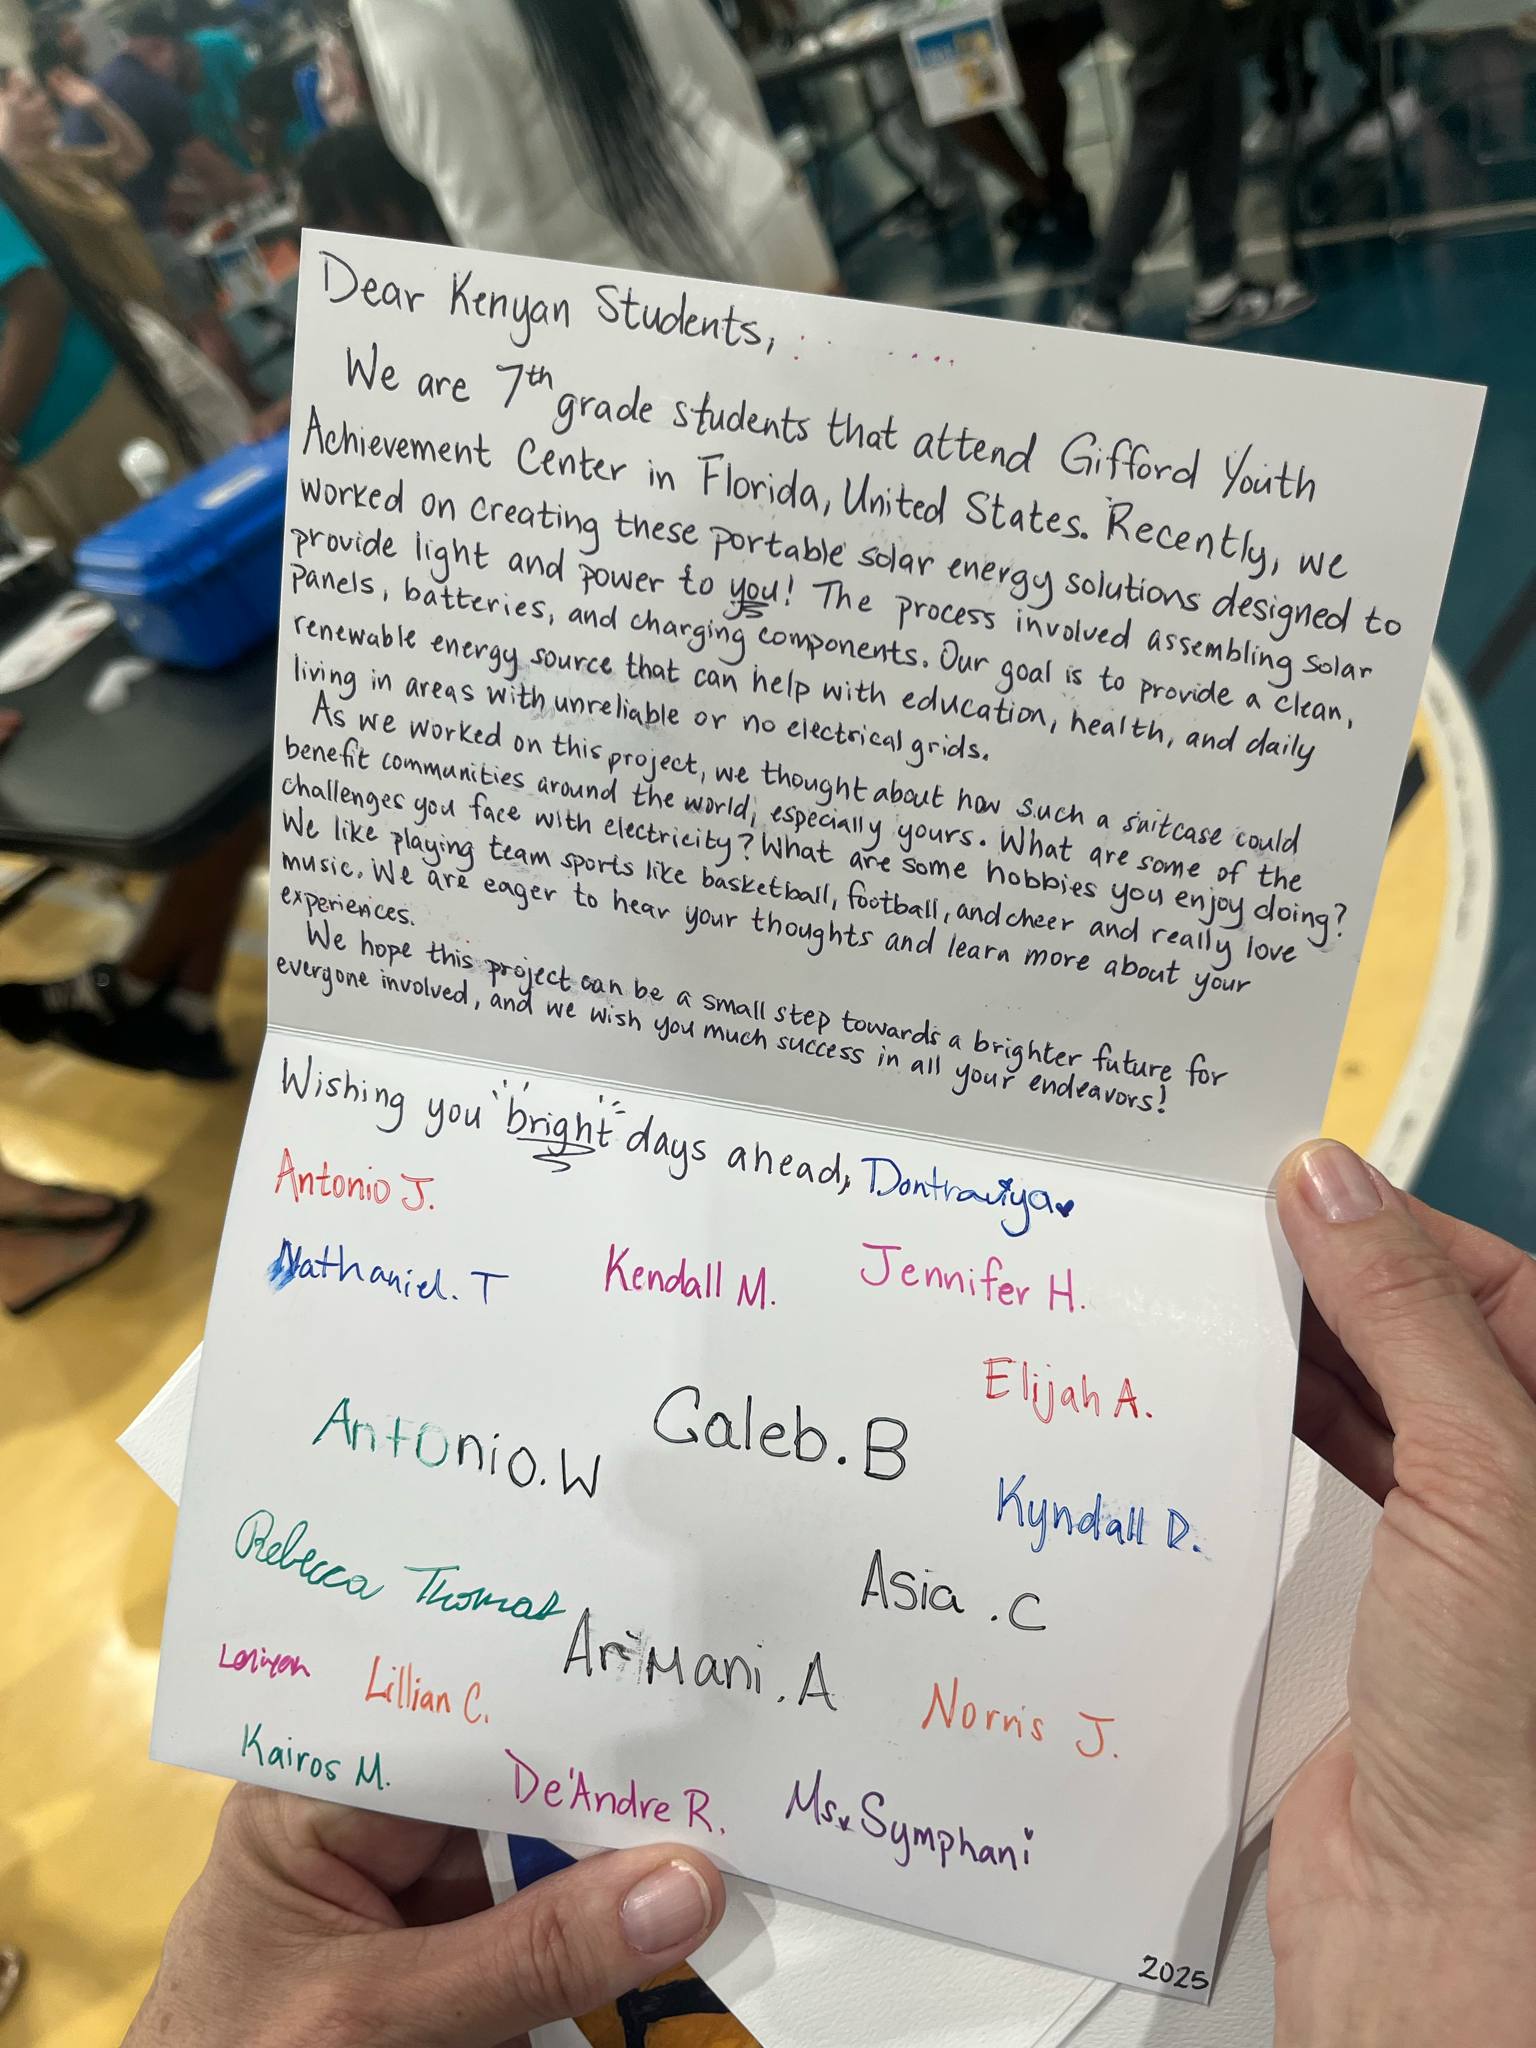 Dear Kenyan Students,
We are 7th grade students that attend Gifford Youth
Achievement Center in Florida, United States. Recently, we
worked on creating these portable solar energy solutions designed to
provide light and power to you! The process involved assembling solar
panels, batteries, and charging components. Our goal is to provide a clean,
renewable energy source that can help with education, health, and daily
living in areas with unreliable or no electrical grids.
As we worked on this project, we thought about how such a suitcase could
benefit communities around the world, especially yours. What are some of the
challenges you face with electricity? What are some hobbies you enjoy doing?
We like playing team sports like basketball, football, and cheer and really love
music. We are eager to hear your thoughts and learn more about your
experiences.
We hope this project can be a small step towards a brighter future for
everyone involved, and we wish you much success in all your endeavors!
Wishing you "bright" days ahead,
Dontraviya
Antonio J.
Nathaniel. T
Kendall M.
Jennifer H.
Elijah A.
Antonio.W
Caleb.B
Kyndall D.
Rebecca Thomas
Asia .C
Ar'Mani.A
Lillian C.
Norris J.
Kairos M.
De'Andre R.
Ms. Symphani
2025